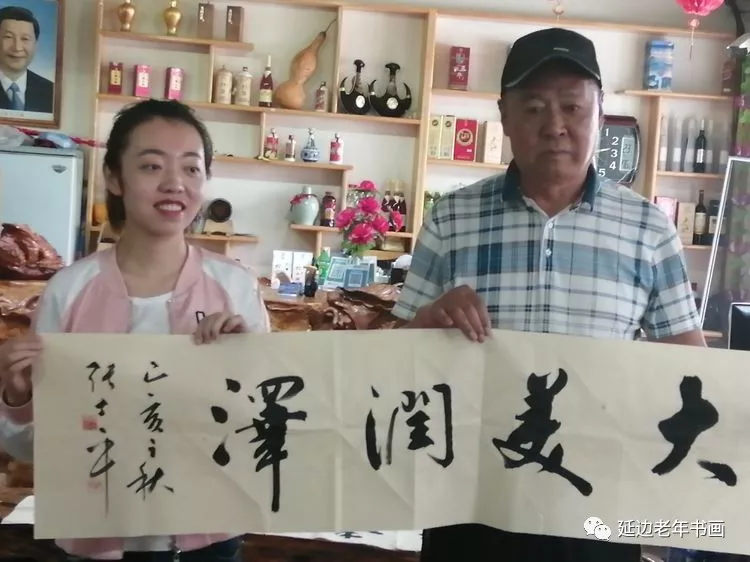 大美潤澤
己亥之秋
張士平
延边老年书画